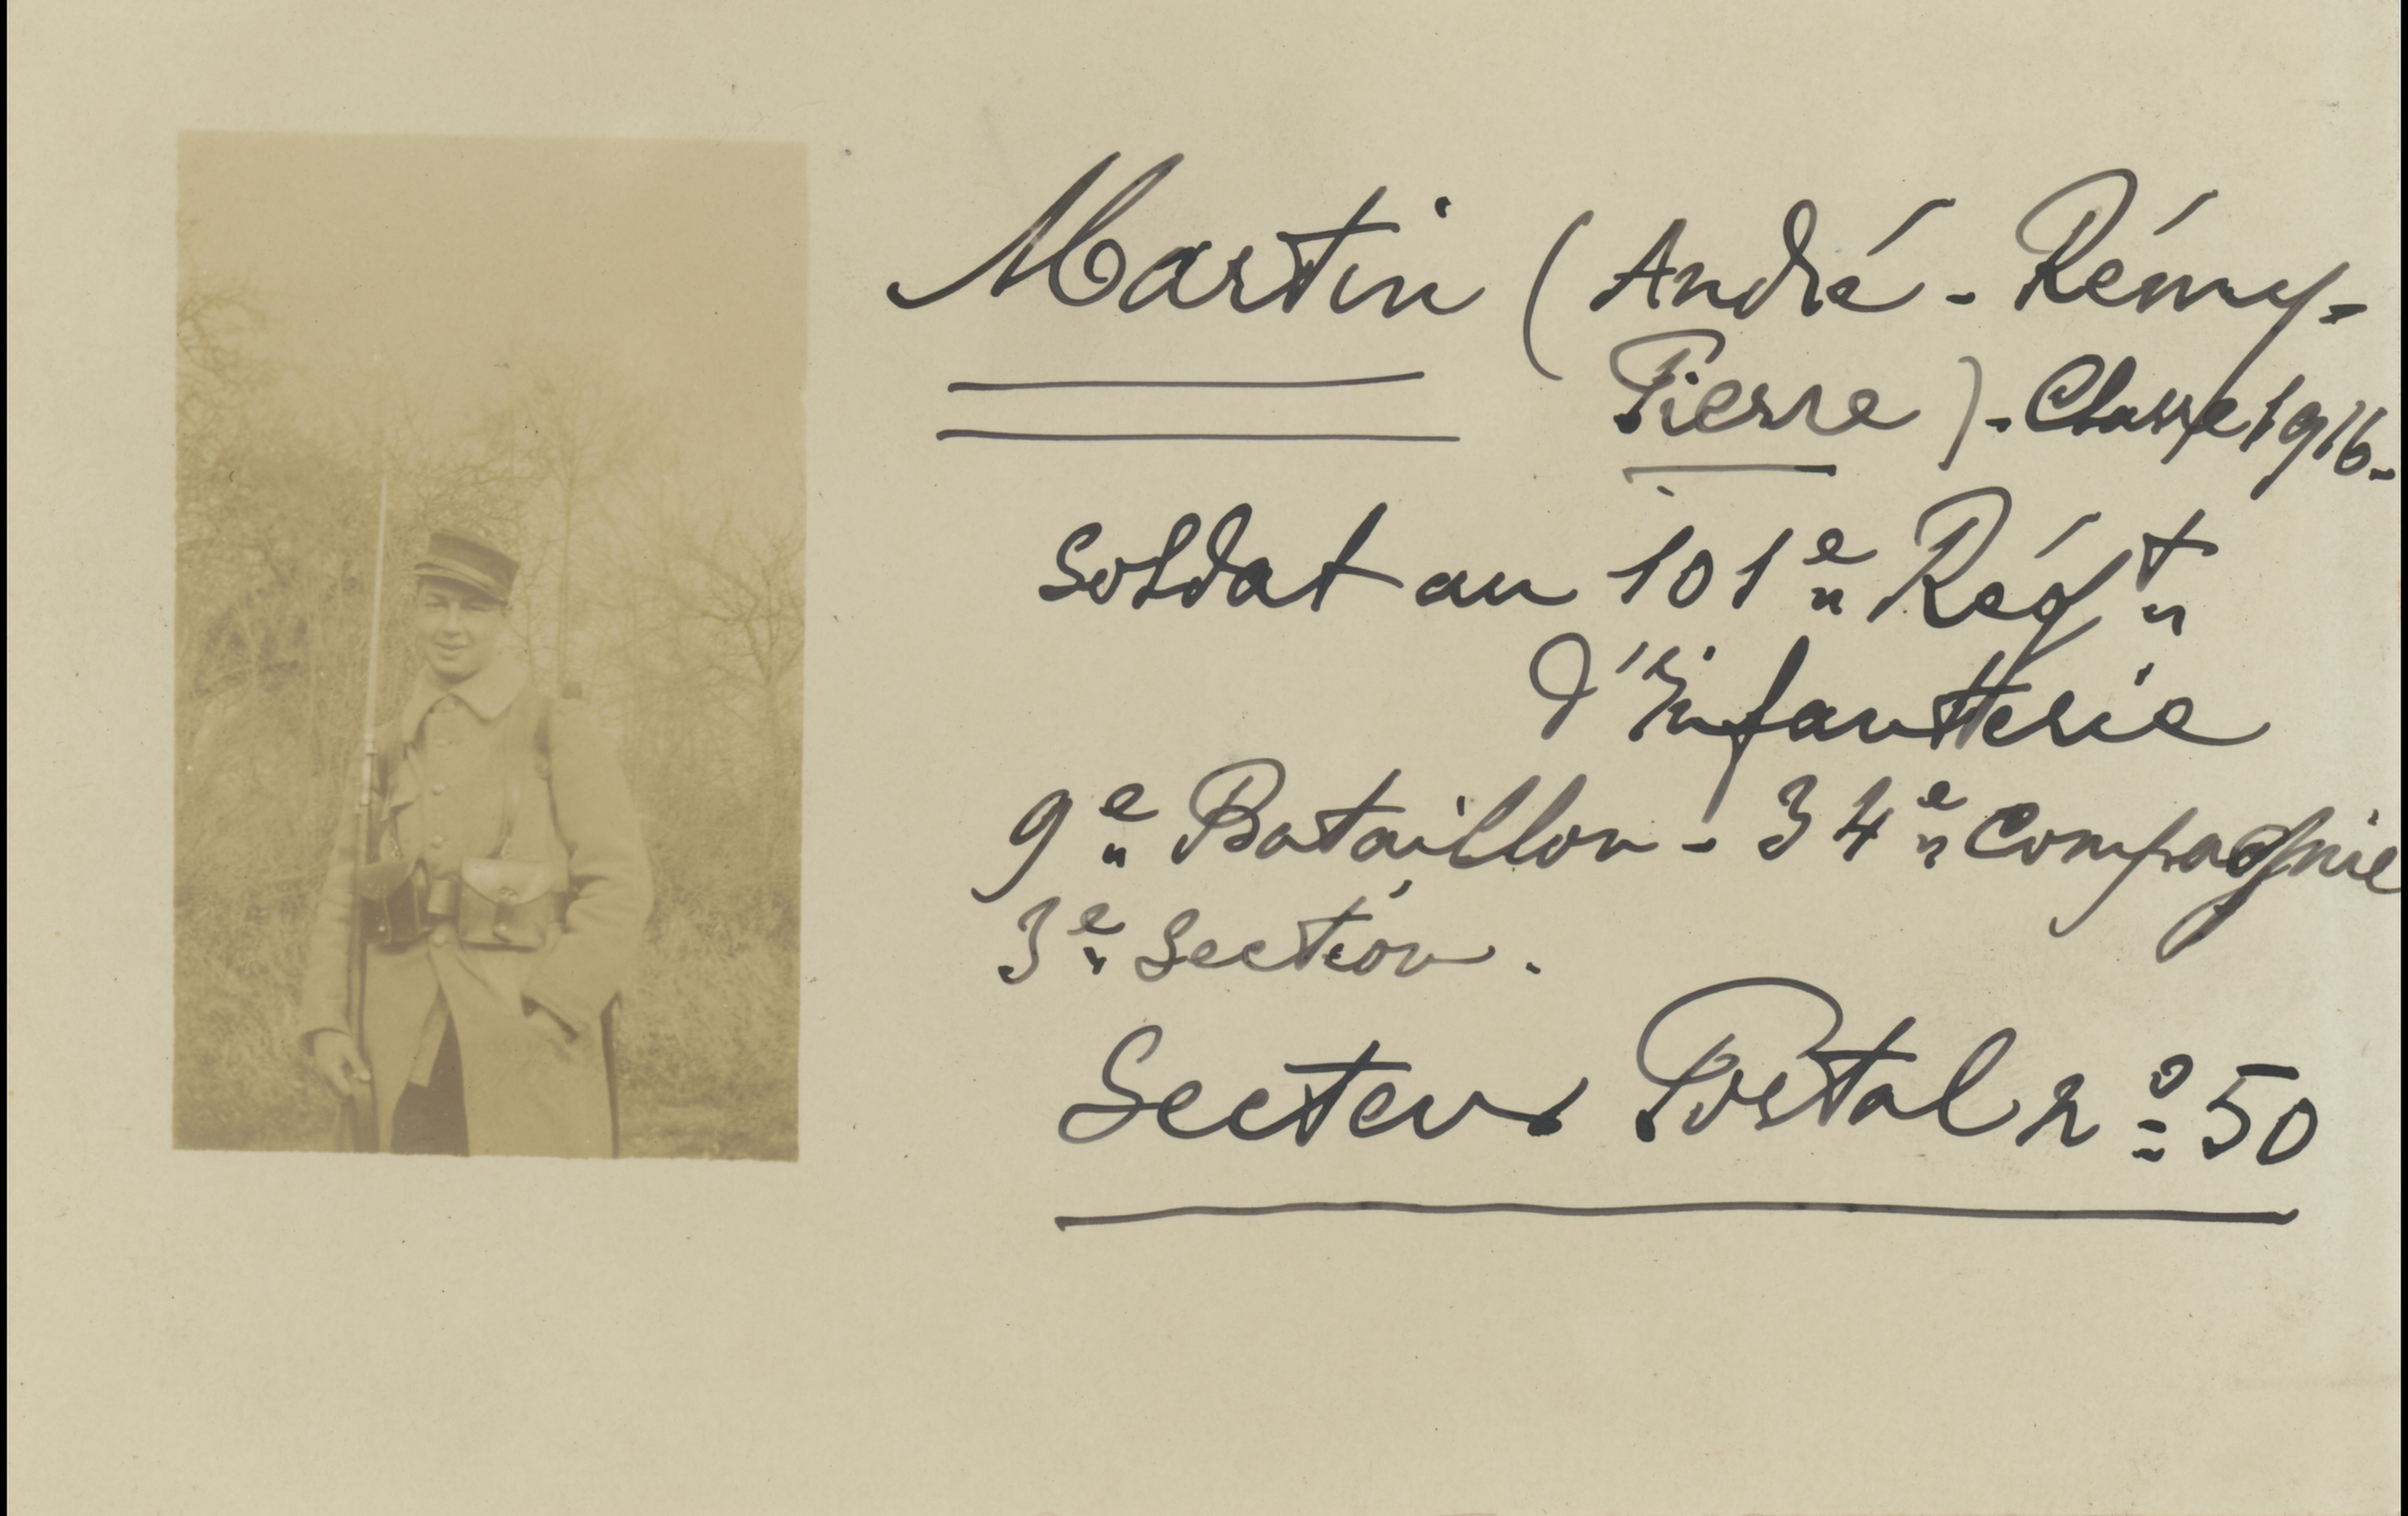 Martin (André-Rémy-
Pierre).-Classe 1916-
Soldat au 101e Régt
d'Infanterie
9e Bataillon - 34e Compagnie
3e Section.
Secteur Postal no 50